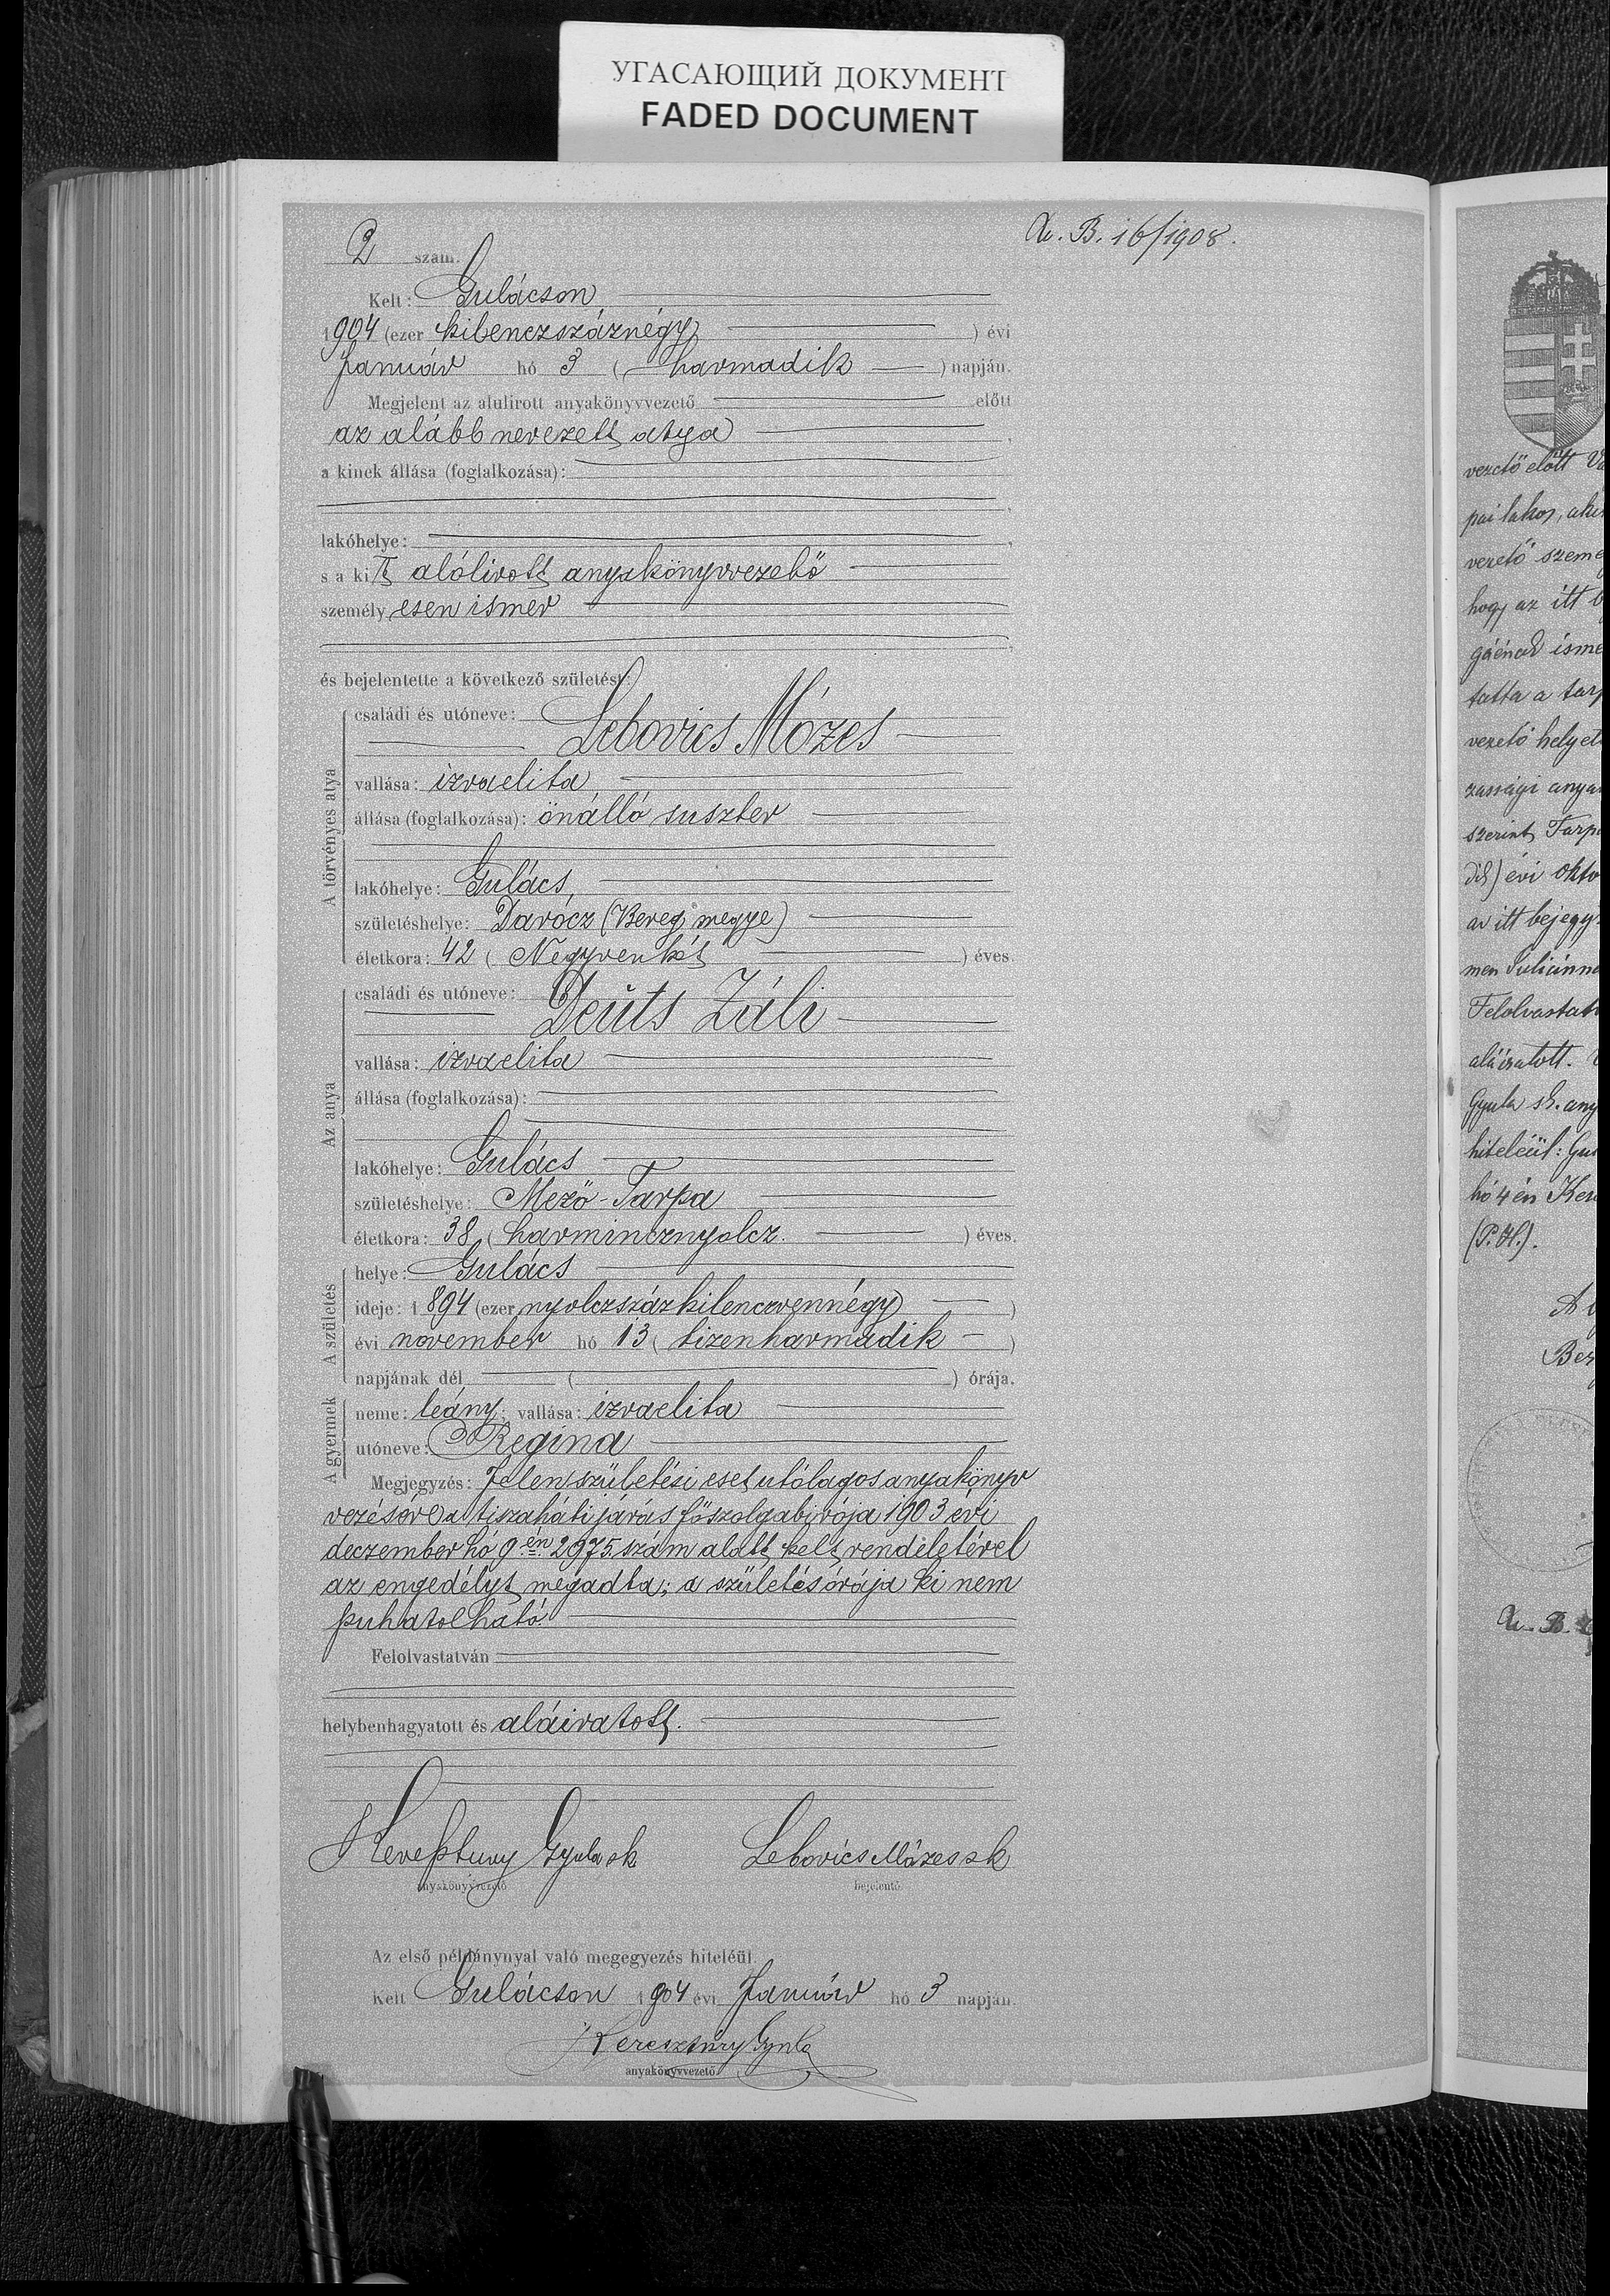 УГАСАЮЩИЙ ДОКУМЕНТ
FADED DOCUMENT
2 szám.
B. 16/1908.
Kelt: Gulácson
1904 (ezer kilenczszáznégy) évi
Január hó 3 (harmadik) napján.
Megjelent az alulirott anyakönyvvezető előtt
az alább nevezett atya,
a kinek állása (foglalkozása):
lakóhelye:
s a kit alólirott anyakönyvvezető
személyesen ismer
és bejelentette a következő születést:
A törvényes atya
családi és utóneve:
Lebovics Mózes
vallása: izraelita
állása (foglalkozása): önálló suszter
lakóhelye: Gulács,
születéshelye: Darócz (Bereg megye)
életkora: 42 (Negyvenkét) éves.
Az anya
családi és utóneve:
Deuts Záli
vallása: izraelita
állása (foglalkozása):
lakóhelye: Gulács
születéshelye: Mező-Tarpa
életkora: 38 (harmincznyolcz.) éves.
A születés
helye: Gulács
ideje: 1894 (ezer nyolczszázkilenczvennégy)
évi november hó 13 (tizenharmadik)
napjának dél ( ) órája.
A gyermek
neme: leány; vallása: izraelita
utóneve: Regina
Megjegyzés: Jelen születési eset utólagos anyakönyv
vezésére a tiszaháti járás főszolgabirója 1903 évi
deczember hó 9 én 2975. szám alatt kelt rendeletével
az engedélyt megadta; a születés órája ki nem
puhatolható.
Felolvastatván
helybenhagyatott és aláiratott.
Keresztury Gyula sk
anyakönyvvezető
Lebovics Mózes sk
bejelentő
Az első példánynyal való megegyezés hiteléül.
Kelt Gulácson 1904 évi Január hó 3 napján.
Keresztúry Gyula
anyakönyvvezető
vezető előtt
pai lakos,
vezető szemé
hogy az itt
tatta a
vezető helyet
zassági anya
szerint Tarpa
évi okto
az itt bejegy
Felolvastat
aláiratott.
Gyula sk. any
hiteléül:
hó 4 én Ker
(P.H.).